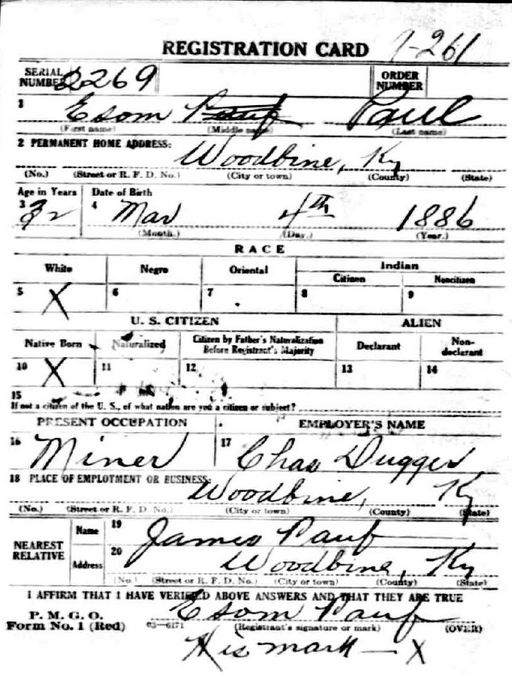 REGISTRATION CARD 1-261
SERIAL NUMBER 2269 ORDER NUMBER
1 Esom Pauf Paul
(First name) (Middle name) (Last name)
2 PERMANENT HOME ADDRESS:
Woodbine, Ky
(No.) (Street or R. F. D. No.) (City or town) (County) (State)
Age in Years Date of Birth
3 32 4 Mar 4th 1886
(Month.) (Day.) (Year.)
RACE
White Negro Oriental Indian
Citizen Noncitizen
5 X 6 7 8 9
U. S. CITIZEN ALIEN
Native Born Naturalized Citizen by Father's Naturalization Before Registrant's Majority Declarant Non-declarant
10 X 11 12 13 14
15
If not a citizen of the U. S., of what nation are you a citizen or subject?
PRESENT OCCUPATION EMPLOYER'S NAME
16 Miner 17 Chas Dugger
18 PLACE OF EMPLOYMENT OR BUSINESS:
Woodbine, Ky
(No.) (Street or R. F. D. No.) (City or town) (County) (State)
NEAREST RELATIVE Name 19 James Pauf
Address 20 Woodbine, Ky
(No.) (Street or R. F. D. No.) (City or town) (County) (State)
I AFFIRM THAT I HAVE VERIFIED ABOVE ANSWERS AND THAT THEY ARE TRUE
P. M. G. O.
Form No. 1 (Red) 03-6171 Esom Pauf
(Registrant's signature or mark) (OVER)
His mark - X